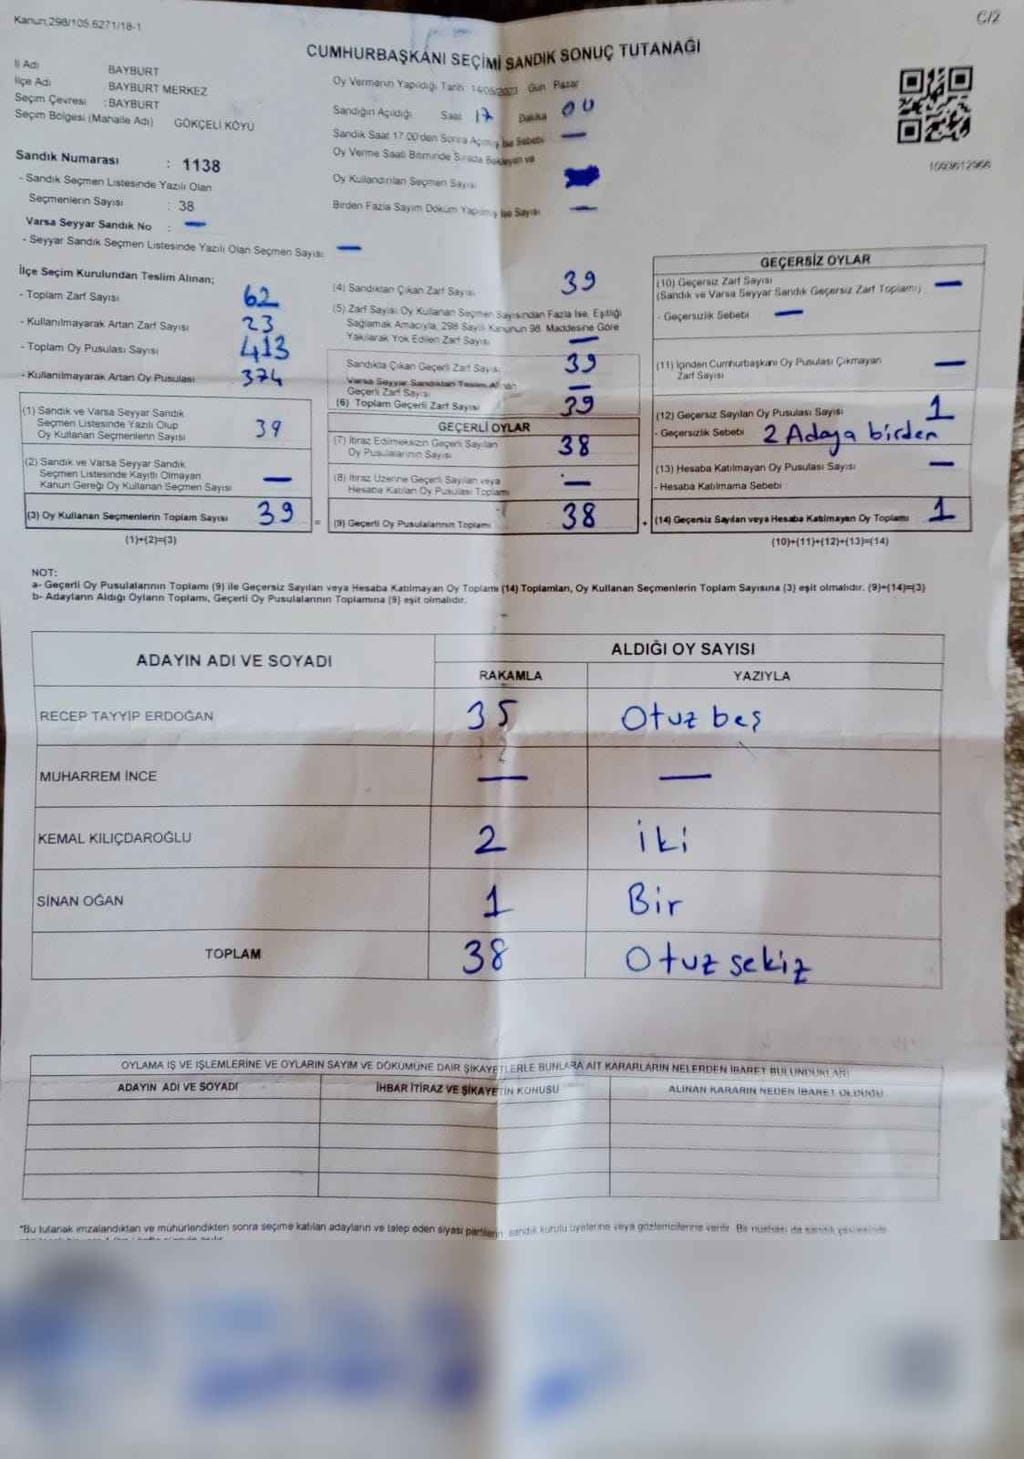 Kanun,298/105,6271/18-1
C/2
CUMHURBAŞKANI SEÇİMİ SANDIK SONUÇ TUTANAĞI
İl Adı BAYBURT
İlçe Adı BAYBURT MERKEZ
Seçim Çevresi : BAYBURT
Seçim Bölgesi (Mahalle Adı) GÖKÇELİ KÖYÜ
Sandık Numarası : 1138
- Sandık Seçmen Listesinde Yazılı Olan
Seçmenlerin Sayısı : 38
Varsa Seyyar Sandık No : —
- Seyyar Sandık Seçmen Listesinde Yazılı Olan Seçmen Sayısı —
Oy Vermenin Yapıldığı Tarih 14/05/2023 Gün Pazar
Sandığın Açıldığı Saat 17 Dakika 00
Sandık Saat 17.00'den Sonra Açılmış İse Sebebi —
Oy Verme Saati Bitiminde Sırada Bekleyen ve
Oy Kullandırılan Seçmen Sayısı
Birden Fazla Sayım Döküm Yapılmış İse Sayısı —
İlçe Seçim Kurulundan Teslim Alınan;
- Toplam Zarf Sayısı 62
- Kullanılmayarak Artan Zarf Sayısı 23
- Toplam Oy Pusulası Sayısı 413
- Kullanılmayarak Artan Oy Pusulası 374
(1) Sandık ve Varsa Seyyar Sandık
Seçmen Listesinde Yazılı Olup
Oy Kullanan Seçmenlerin Sayısı 39
(2) Sandık ve Varsa Seyyar Sandık
Seçmen Listesinde Kayıtlı Olmayan
Kanun Gereği Oy Kullanan Seçmen Sayısı —
(3) Oy Kullanan Seçmenlerin Toplam Sayısı 39 =
(1)+(2)=(3)
(4) Sandıktan Çıkan Zarf Sayısı 39
(5) Zarf Sayısı Oy Kullanan Seçmen Sayısından Fazla İse, Eşitliği
Sağlamak Amacıyla, 298 Sayılı Kanunun 98. Maddesine Göre
Yakılarak Yok Edilen Zarf Sayısı —
Sandıkta Çıkan Geçerli Zarf Sayısı 39
Varsa Seyyar Sandıktan Teslim Alınan
Geçerli Zarf Sayısı —
(6) Toplam Geçerli Zarf Sayısı 39
GEÇERLİ OYLAR
(7) İtiraz Edilmeksizin Geçerli Sayılan
Oy Pusulalarının Sayısı 38
(8) İtiraz Üzerine Geçerli Sayılan veya
Hesaba Katılan Oy Pusulası Toplamı —
(9) Geçerli Oy Pusulalarının Toplamı 38 +
1093612966
GEÇERSİZ OYLAR
(10) Geçersiz Zarf Sayısı
(Sandık ve Varsa Seyyar Sandık Geçersiz Zarf Toplamı) —
- Geçersizlik Sebebi —
(11) İçinden Cumhurbaşkanı Oy Pusulası Çıkmayan
Zarf Sayısı —
(12) Geçersiz Sayılan Oy Pusulası Sayısı 1
- Geçersizlik Sebebi 2 Adaya birden
(13) Hesaba Katılmayan Oy Pusulası Sayısı —
- Hesaba Katılmama Sebebi
(14) Geçersiz Sayılan veya Hesaba Katılmayan Oy Toplamı 1
(10)+(11)+(12)+(13)=(14)
NOT:
a- Geçerli Oy Pusulalarının Toplamı (9) ile Geçersiz Sayılan veya Hesaba Katılmayan Oy Toplamı (14) Toplamları, Oy Kullanan Seçmenlerin Toplam Sayısına (3) eşit olmalıdır. (9)+(14)=(3)
b- Adayların Aldığı Oyların Toplamı, Geçerli Oy Pusulalarının Toplamına (9) eşit olmalıdır.
ADAYIN ADI VE SOYADI ALDIĞI OY SAYISI
RAKAMLA YAZIYLA
RECEP TAYYİP ERDOĞAN 35 Otuz beş
MUHARREM İNCE — —
KEMAL KILIÇDAROĞLU 2 İki
SİNAN OĞAN 1 Bir
TOPLAM 38 Otuz sekiz
OYLAMA İŞ VE İŞLEMLERİNE VE OYLARIN SAYIM VE DÖKÜMÜNE DAİR ŞİKAYETLERLE BUNLARA AİT KARARLARIN NELERDEN İBARET BULUNDUKLARI
ADAYIN ADI VE SOYADI İHBAR İTİRAZ VE ŞİKAYETİN KONUSU ALINAN KARARIN NEDEN İBARET OLDUĞU
*Bu tutanak imzalandıktan ve mühürlendikten sonra seçime katılan adayların ve talep eden siyasi partilerin sandık kurulu üyelerine veya gözlemcilerine verilir. Bir nüshası da sandık çevresinde